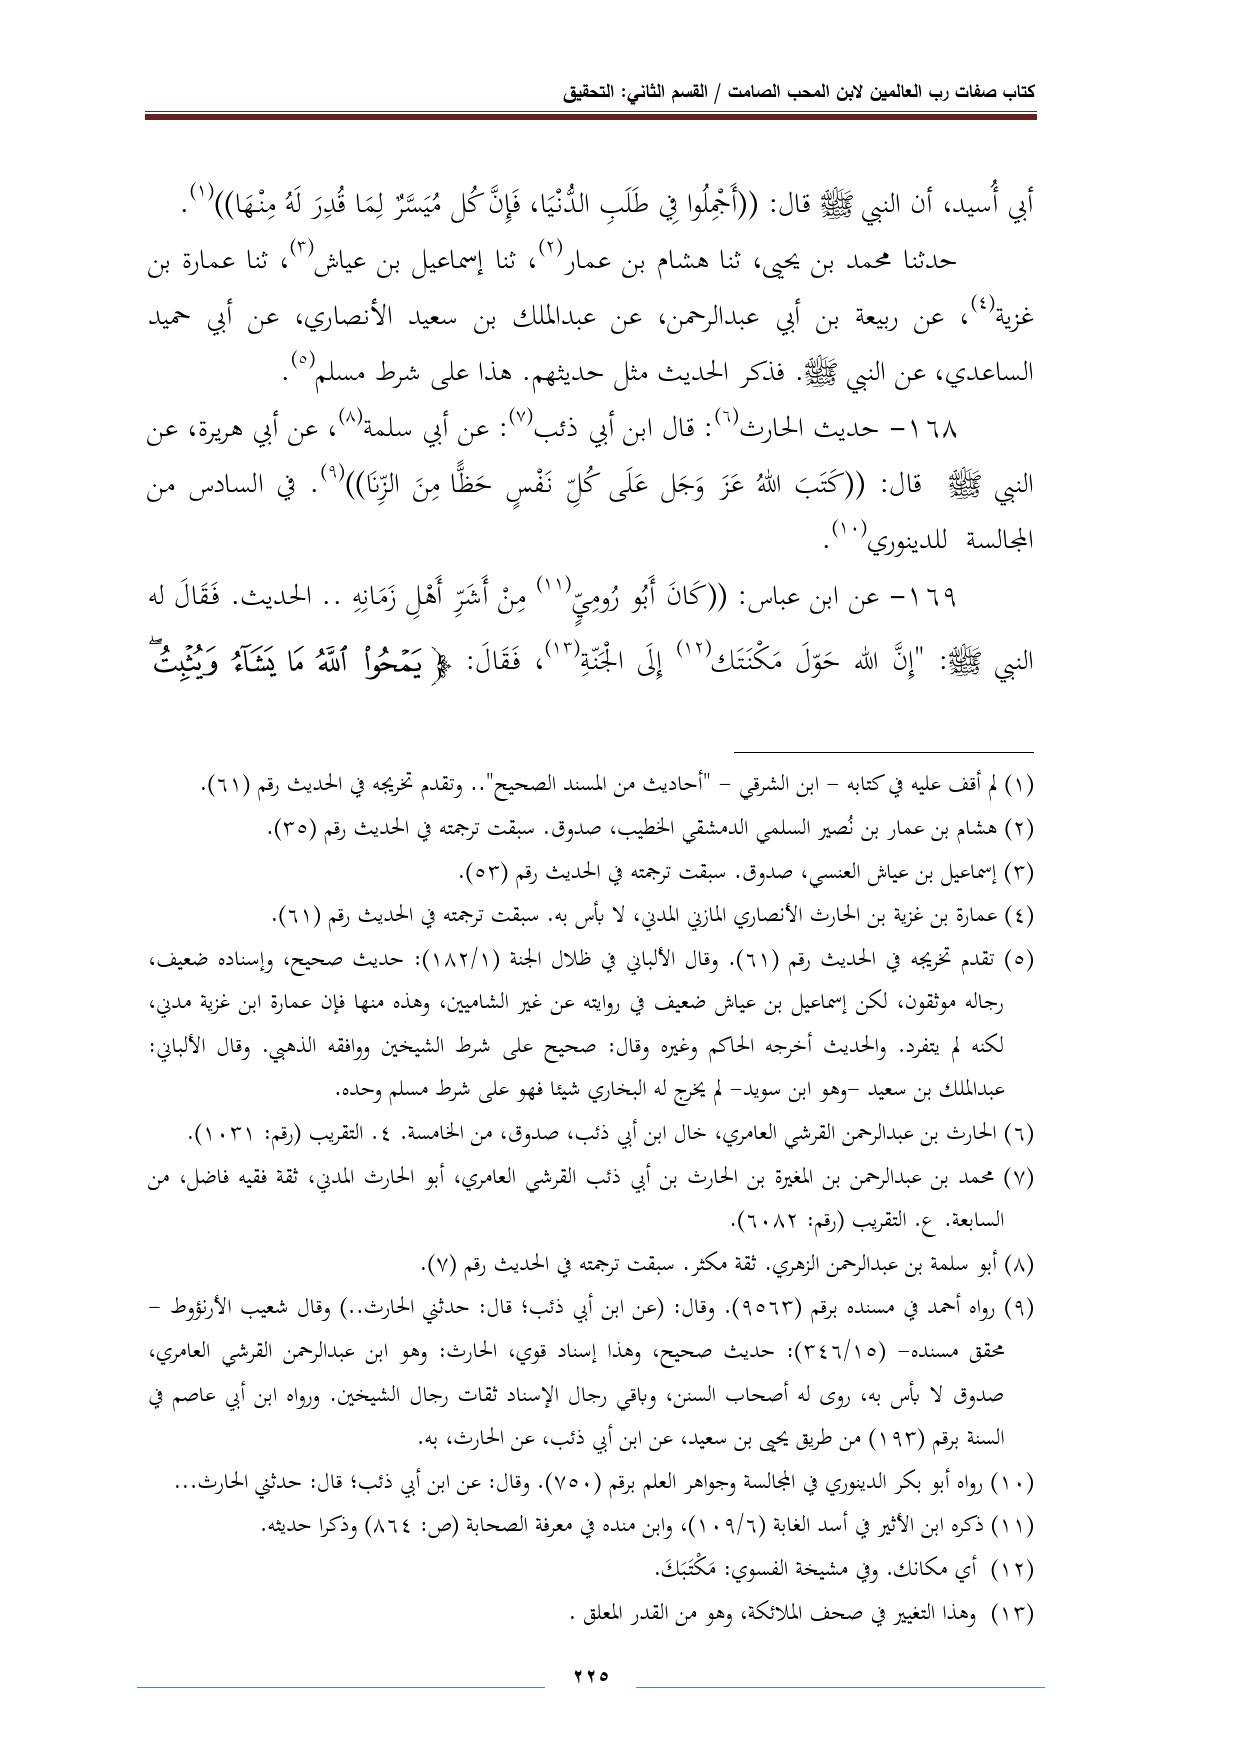 كتاب صفات رب العالمين لابن المحب الصامت / القسم الثاني: التحقيق
أبي أُسيد، أن النبي ﷺ قال: ((أَجْمِلُوا فِي طَلَبِ الدُّنْيَا، فَإِنَّ كُل مُيَسَّرٌ لِمَا قُدِرَ لَهُ مِنْهَا))(١).
حدثنا محمد بن يحيى، ثنا هشام بن عمار(٢)، ثنا إسماعيل بن عياش(٣)، ثنا عمارة بن
غزية(٤)، عن ربيعة بن أبي عبدالرحمن، عن عبدالملك بن سعيد الأنصاري، عن أبي حميد
الساعدي، عن النبي ﷺ. فذكر الحديث مثل حديثهم. هذا على شرط مسلم(٥).
١٦٨- حديث الحارث(٦): قال ابن أبي ذئب(٧): عن أبي سلمة(٨)، عن أبي هريرة، عن
النبي ﷺ قال: ((كَتَبَ اللهُ عَزَ وَجَل عَلَى كُلِّ نَفْسٍ حَظًّا مِنَ الزِّنَا))(٩). في السادس من
المجالسة للدينوري(١٠).
١٦٩- عن ابن عباس: ((كَانَ أَبُو رُومِيٍّ(١١) مِنْ أَشَرِّ أَهْلِ زَمَانِهِ .. الحديث. فَقَالَ له
النبي ﷺ: "إِنَّ الله حَوّلَ مَكْنَتَك(١٢) إِلَى الْجَنّةِ(١٣)، فَقَالَ: ﴿ يَمْحُوا۟ ٱللَّهُ مَا يَشَآءُ وَيُثْبِتُ ۖ
(١) لم أقف عليه في كتابه – ابن الشرقي – "أحاديث من المسند الصحيح".. وتقدم تخريجه في الحديث رقم (٦١).
(٢) هشام بن عمار بن نُصير السلمي الدمشقي الخطيب، صدوق. سبقت ترجمته في الحديث رقم (٣٥).
(٣) إسماعيل بن عياش العنسي، صدوق. سبقت ترجمته في الحديث رقم (٥٣).
(٤) عمارة بن غزية بن الحارث الأنصاري المازني المدني، لا بأس به. سبقت ترجمته في الحديث رقم (٦١).
(٥) تقدم تخريجه في الحديث رقم (٦١). وقال الألباني في ظلال الجنة (١٨٢/١): حديث صحيح، وإسناده ضعيف،
رجاله موثقون، لكن إسماعيل بن عياش ضعيف في روايته عن غير الشاميين، وهذه منها فإن عمارة ابن غزية مدني،
لكنه لم يتفرد. والحديث أخرجه الحاكم وغيره وقال: صحيح على شرط الشيخين ووافقه الذهبي. وقال الألباني:
عبدالملك بن سعيد -وهو ابن سويد- لم يخرج له البخاري شيئا فهو على شرط مسلم وحده.
(٦) الحارث بن عبدالرحمن القرشي العامري، خال ابن أبي ذئب، صدوق، من الخامسة. ٤. التقريب (رقم: ١٠٣١).
(٧) محمد بن عبدالرحمن بن المغيرة بن الحارث بن أبي ذئب القرشي العامري، أبو الحارث المدني، ثقة فقيه فاضل، من
السابعة. ع. التقريب (رقم: ٦٠٨٢).
(٨) أبو سلمة بن عبدالرحمن الزهري. ثقة مكثر. سبقت ترجمته في الحديث رقم (٧).
(٩) رواه أحمد في مسنده برقم (٩٥٦٣). وقال: (عن ابن أبي ذئب؛ قال: حدثني الحارث..) وقال شعيب الأرنؤوط –
محقق مسنده- (٣٤٦/١٥): حديث صحيح، وهذا إسناد قوي، الحارث: وهو ابن عبدالرحمن القرشي العامري،
صدوق لا بأس به، روى له أصحاب السنن، وباقي رجال الإسناد ثقات رجال الشيخين. ورواه ابن أبي عاصم في
السنة برقم (١٩٣) من طريق يحيى بن سعيد، عن ابن أبي ذئب، عن الحارث، به.
(١٠) رواه أبو بكر الدينوري في المجالسة وجواهر العلم برقم (٧٥٠). وقال: عن ابن أبي ذئب؛ قال: حدثني الحارث...
(١١) ذكره ابن الأثير في أسد الغابة (١٠٩/٦)، وابن منده في معرفة الصحابة (ص: ٨٦٤) وذكرا حديثه.
(١٢) أي مكانك. وفي مشيخة الفسوي: مَكْتَبَكَ.
(١٣) وهذا التغيير في صحف الملائكة، وهو من القدر المعلق .
٢٢٥